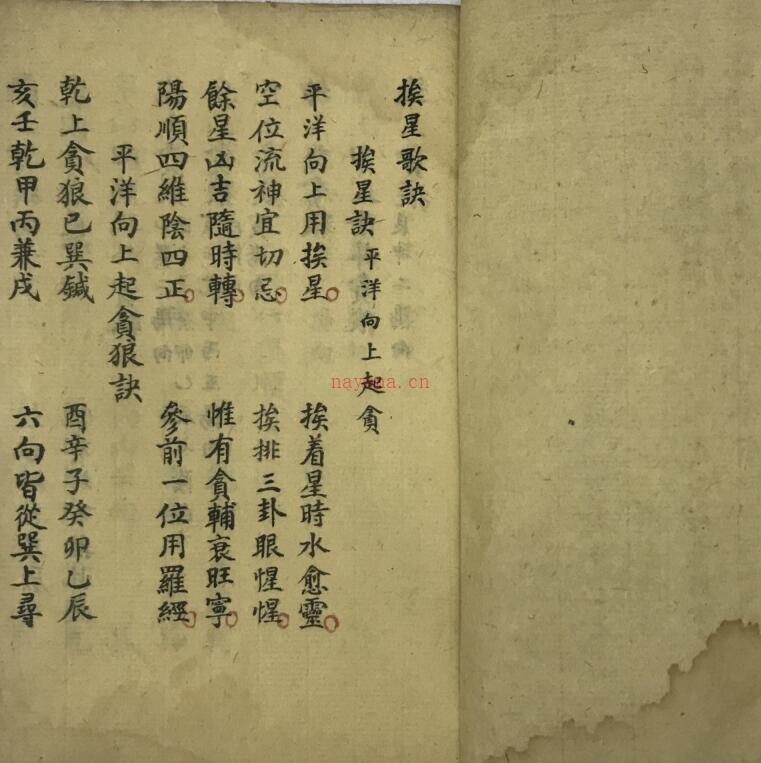 挨星歌訣
挨星訣 平洋向上起貪
平洋向上用挨星 挨着星時水愈靈
空位流神宜切忌 挨排三卦眼惺惺
餘星凶吉隨時轉 惟有貪輔衰旺寧
陽順四維陰四正 參前一位用羅經
平洋向上起貪狼訣
乾上貪狼巳巽鍼 酉辛子癸卯乙辰
亥壬乾甲丙兼戌 六向皆從巽上尋
nayona.cn